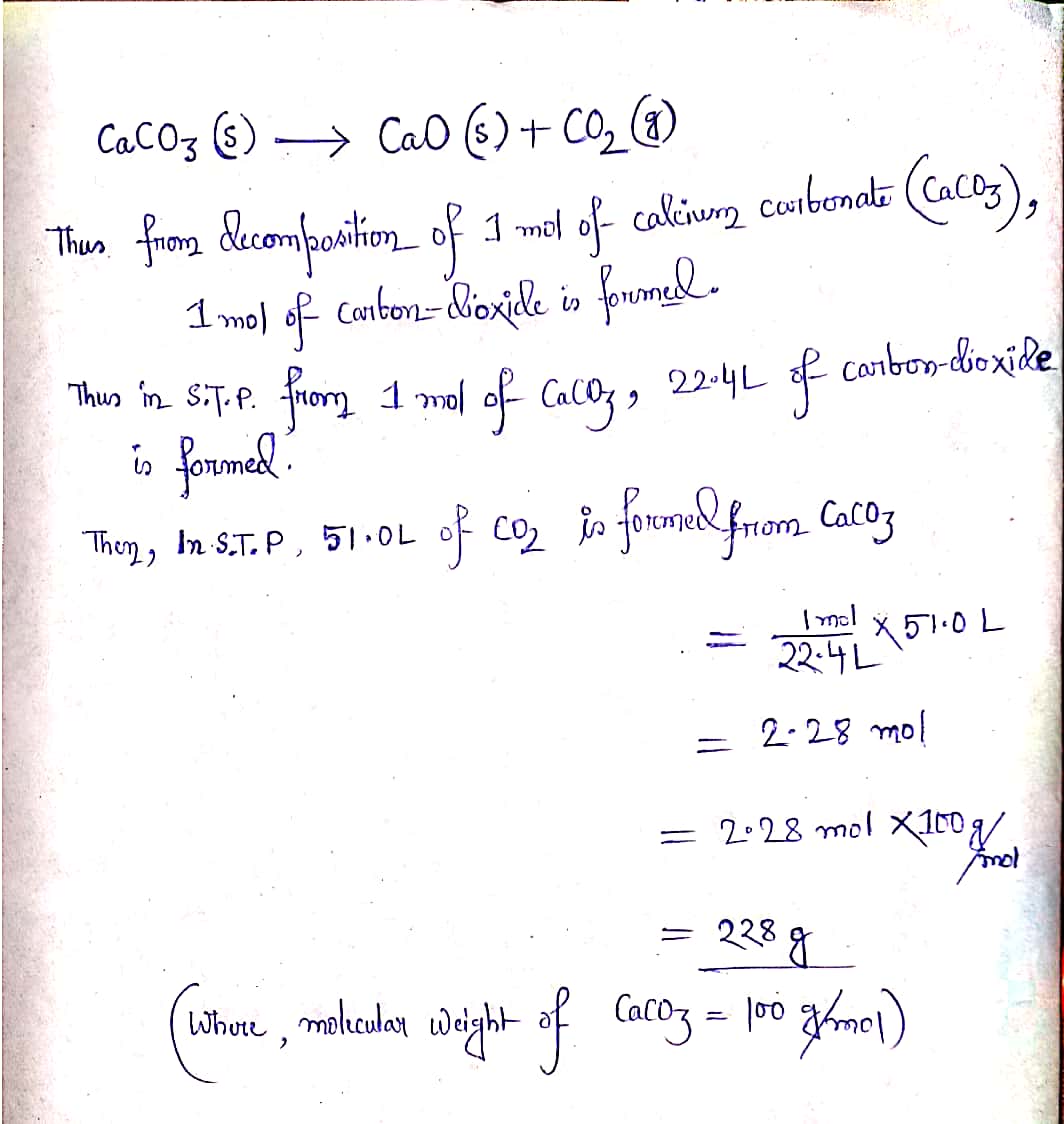 CaCO₃ (s) ⟶ CaO (s) + CO₂ (g)
Thus from decomposition of 1 mol of calcium carbonate (CaCO₃),
1 mol of carbon-dioxide is formed.
Thus in S.T.P. from 1 mol of CaCO₃, 22.4L of carbon-dioxide
is formed.
Then, In S.T.P, 51.0L of CO₂ is formed from CaCO₃
= 1 mol/22.4 L × 51.0 L
= 2.28 mol
= 2.28 mol × 100 g/mol
= 228 g
(Where, molecular weight of CaCO₃ = 100 g/mol)